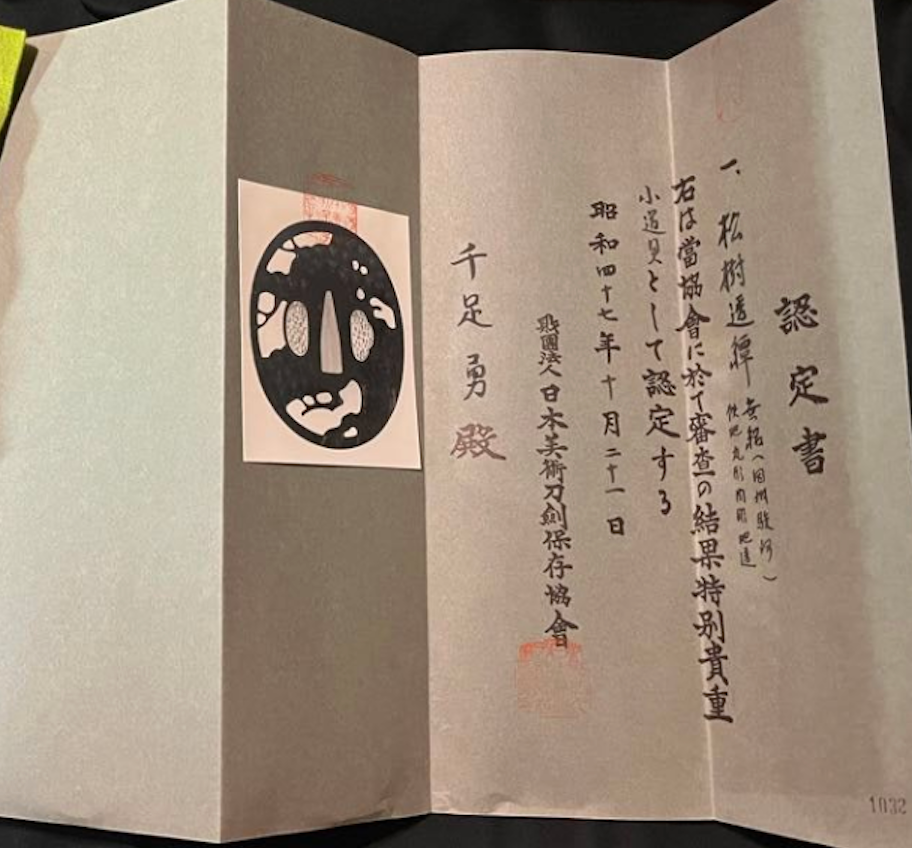 認定書
一、松樹透鐔 無銘(因州駿河)
鉄地 丸形 肉彫地透
右は當協會に於て審査の結果特別貴重
小道具として認定する
昭和四十七年十月二十一日
財團法人日本美術刀劍保存協會
千足勇殿
1032